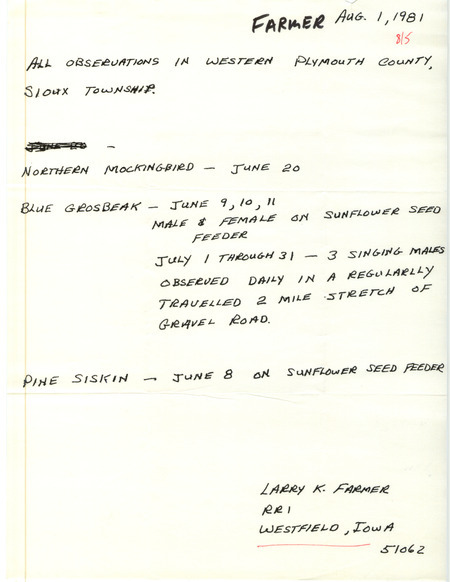 FARMER AUG. 1, 1981
8/5
ALL OBSERVATIONS IN WESTERN PLYMOUTH COUNTY,
SIOUX TOWNSHIP.
–
NORTHERN MOCKINGBIRD – JUNE 20
BLUE GROSBEAK – JUNE 9, 10, 11
MALE & FEMALE ON SUNFLOWER SEED
FEEDER
JULY 1 THROUGH 31 – 3 SINGING MALES
OBSERVED DAILY IN A REGULARLLY
TRAVELLED 2 MILE STRETCH OF
GRAVEL ROAD.
PINE SISKIN – JUNE 8 ON SUNFLOWER SEED FEEDER
LARRY K. FARMER
RR1
WESTFIELD, IOWA
51062